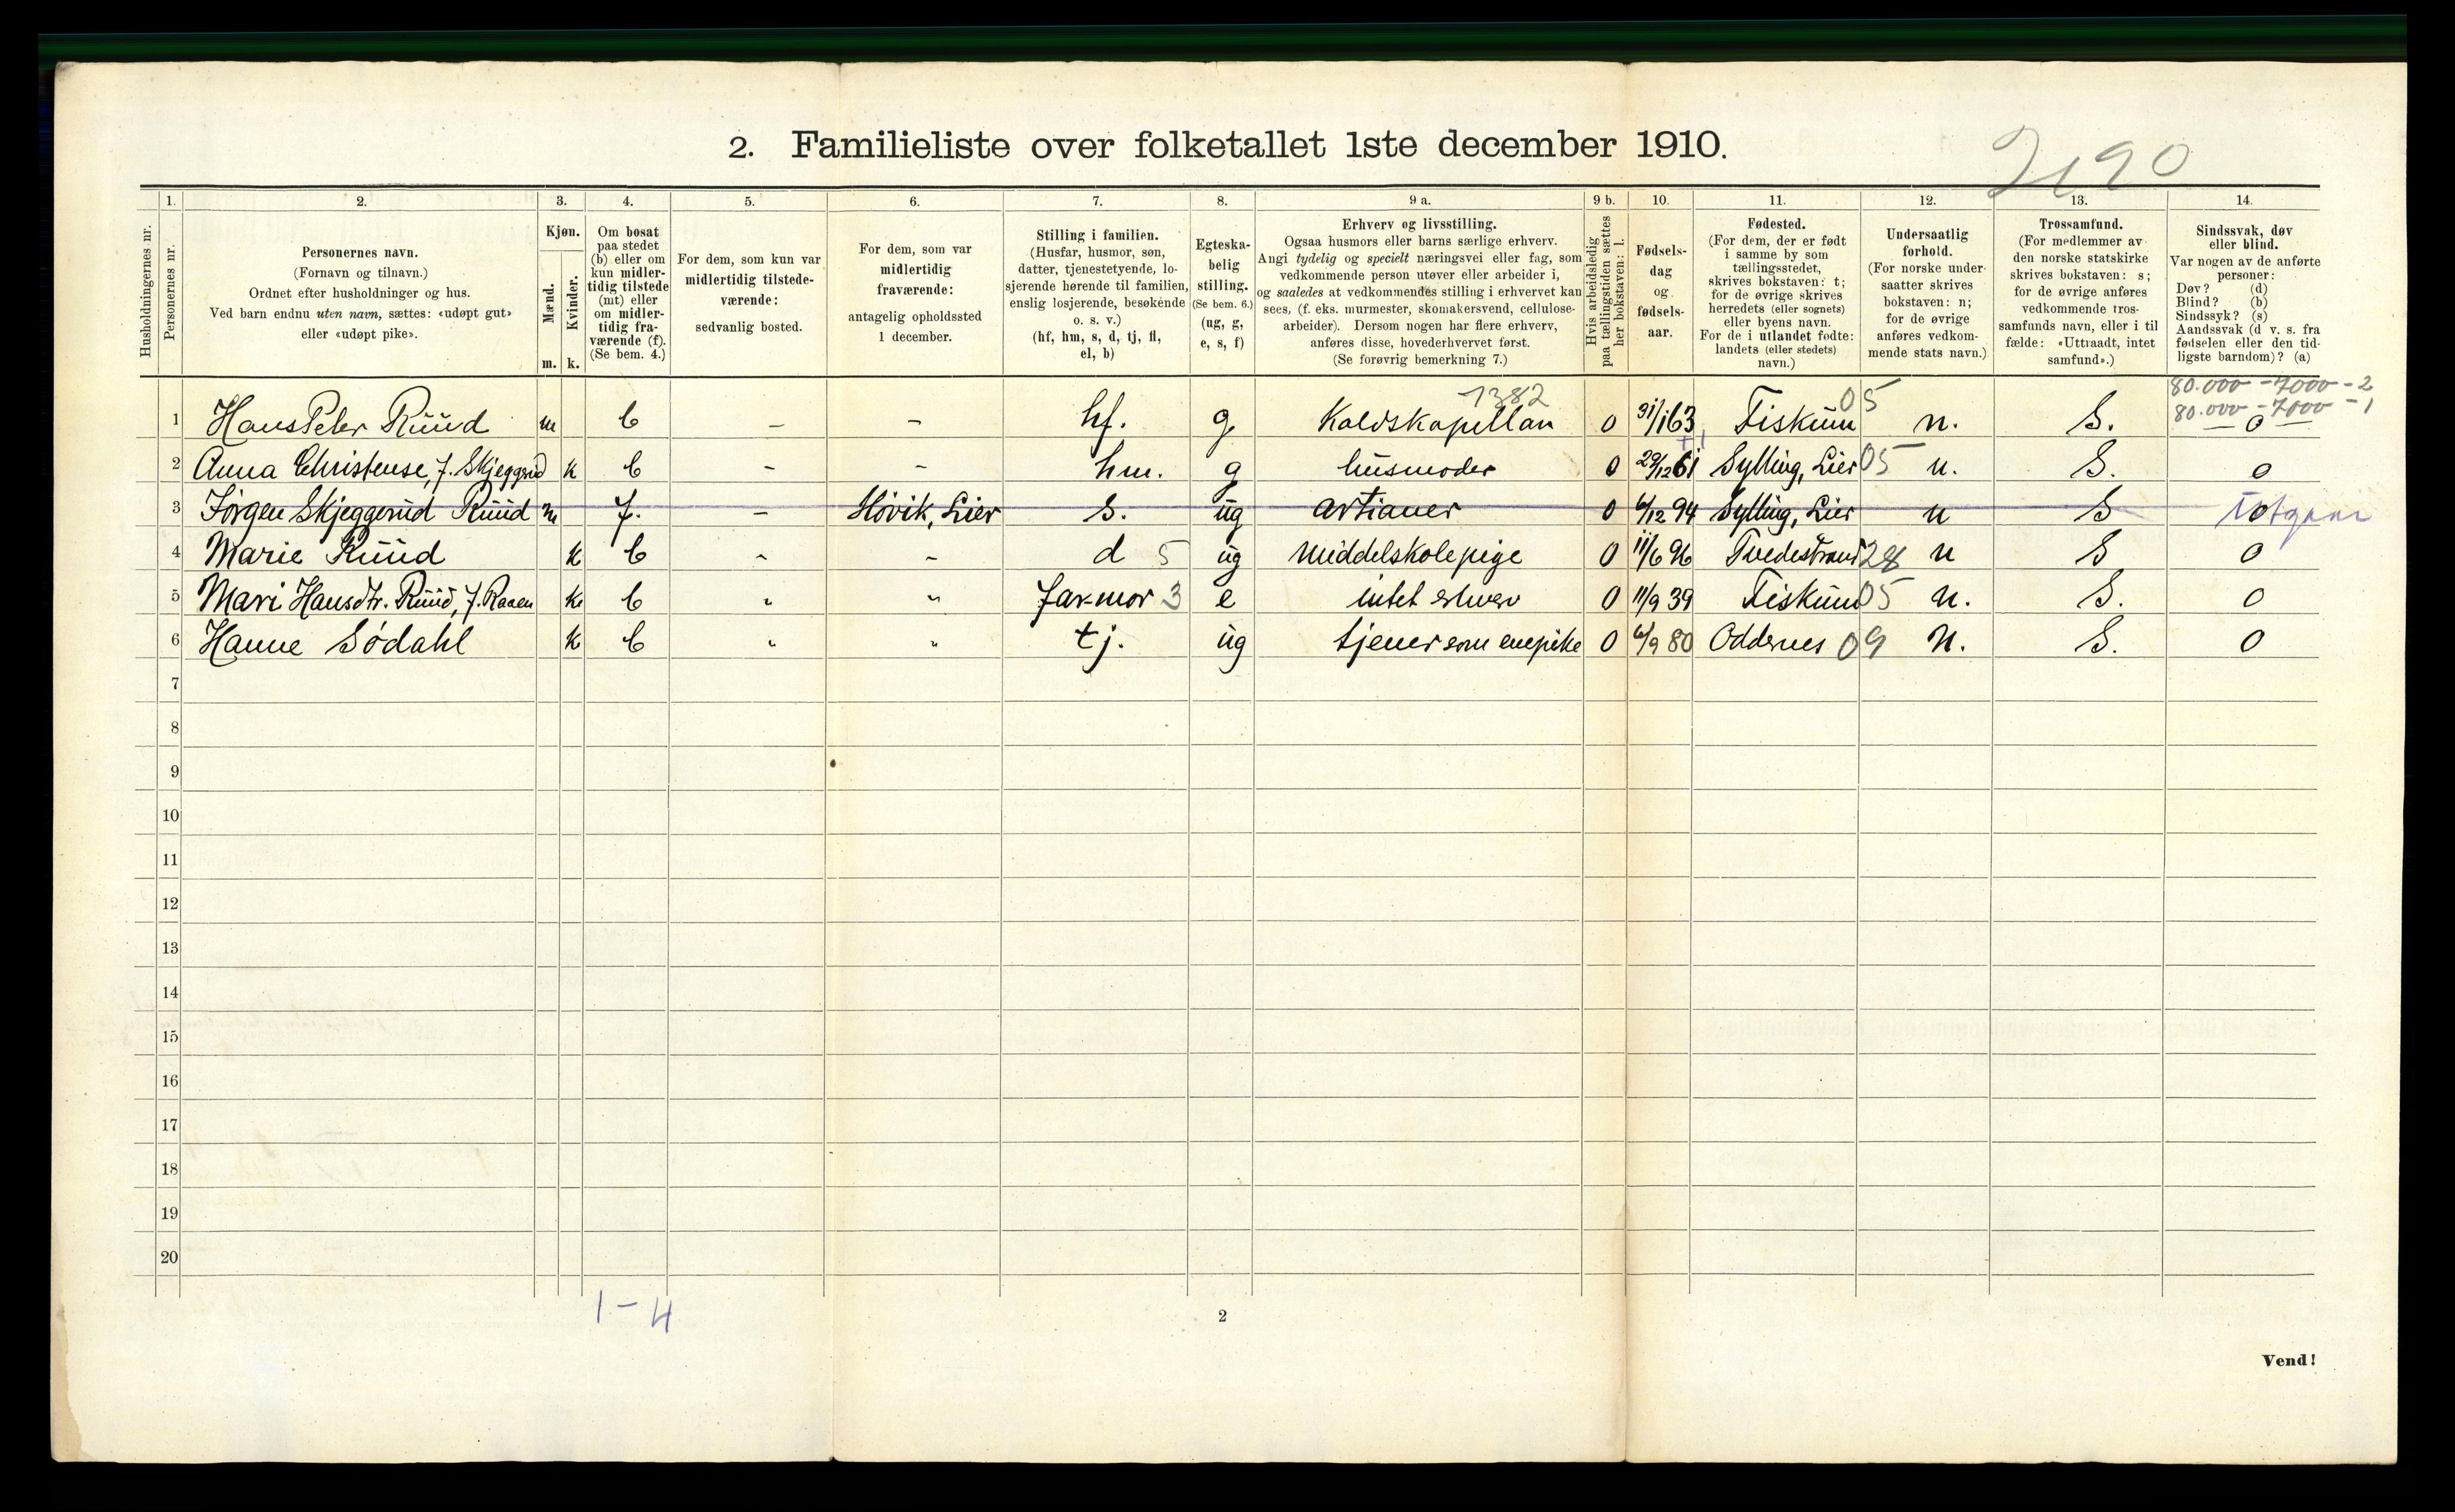 2. Familieliste over folketallet 1ste december 1910.
2190
1. 2. 3. 4. 5. 6. 7. 8. 9 a. 9 b. 10. 11. 12. 13. 14.
Husholdningernes nr.
Personernes nr.
Personernes navn.
(Fornavn og tilnavn.)
Ordnet efter husholdninger og hus.
Ved barn endnu uten navn, sættes: «udøpt gut»
eller «udøpt pike».
Kjøn.
Mænd.
m.
Kvinder.
k.
Om bosat
paa stedet
(b) eller om
kun midler-
tidig tilstede
(mt) eller
om midler-
tidig fra-
værende (f).
(Se bem. 4.)
For dem, som kun var
midlertidig tilstede-
værende:
sedvanlig bosted.
For dem, som var
midlertidig
fraværende:
antagelig opholdssted
1 december.
Stilling i familien.
(Husfar, husmor, søn,
datter, tjenestetyende, lo-
sjerende hørende til familien,
enslig losjerende, besøkende
o. s. v.)
(hf, hm, s, d, tj, fl,
el, b)
Egteska-
belig
stilling.
(Se bem. 6.)
(ug, g,
e, s, f)
Erhverv og livsstilling.
Ogsaa husmors eller barns særlige erhverv.
Angi tydelig og specielt næringsvei eller fag, som
vedkommende person utøver eller arbeider i,
og saaledes at vedkommendes stilling i erhvervet kan
sees, (f. eks. murmester, skomakersvend, cellulose-
arbeider). Dersom nogen har flere erhverv,
anføres disse, hovederhvervet først.
(Se forøvrig bemerkning 7.)
Hvis arbeidsledig
paa tællingstiden sættes
her bokstaven: l.
Fødsels-
dag
og
fødsels-
aar.
Fødested.
(For dem, der er født
i samme by som
tællingsstedet,
skrives bokstaven: t;
for de øvrige skrives
herredets (eller sognets)
eller byens navn.
For de i utlandet fødte:
landets (eller stedets)
navn.)
Undersaatlig
forhold.
(For norske under-
saatter skrives
bokstaven: n;
for de øvrige
anføres vedkom-
mende stats navn.)
Trossamfund.
(For medlemmer av
den norske statskirke
skrives bokstaven: s;
for de øvrige anføres
vedkommende tros-
samfunds navn, eller i til
fælde: «Uttraadt, intet
samfund».)
Sindssvak, døv
eller blind.
Var nogen av de anførte
personer:
Døv? (d)
Blind? (b)
Sindssyk? (s)
Aandssvak (d v. s. fra
fødselen eller den tid-
ligste barndom)? (a)
1382 05 80.000 - 7000 - 2
80.000 - 7000 - 1
1 Hans Peter Ruud m b - - hf. g Kaldskapellan 0 31/1 63 Fiskum n. S. 0
2 Anna Christense, f. Skjeggrud k b - - hm. g husmoder 0 29/12 61 Sylling, Lier 05 n. S. 0
3 Jørgen Skjeggerud Ruud m f. - Høvik, Lier s. ug artianer 0 6/12 94 Sylling, Lier n S
4 Marie Ruud k b - - d 5 ug middelskolepige 0 11/6 96 Tvedestrand 28 n S 0
5 Mari Hansdtr. Ruud, f. Raaen k b " " far-mor 3 e intet erhverv 0 11/9 39 Fiskum 05 n. S. 0
6 Hanne Sødahl k b " " tj. ug tjener som enepike 0 6/9 80 Oddernes 09 n. S. 0
7
8
9
10
11
12
13
14
15
16
17
18
19
20
1-4
2
Vend!